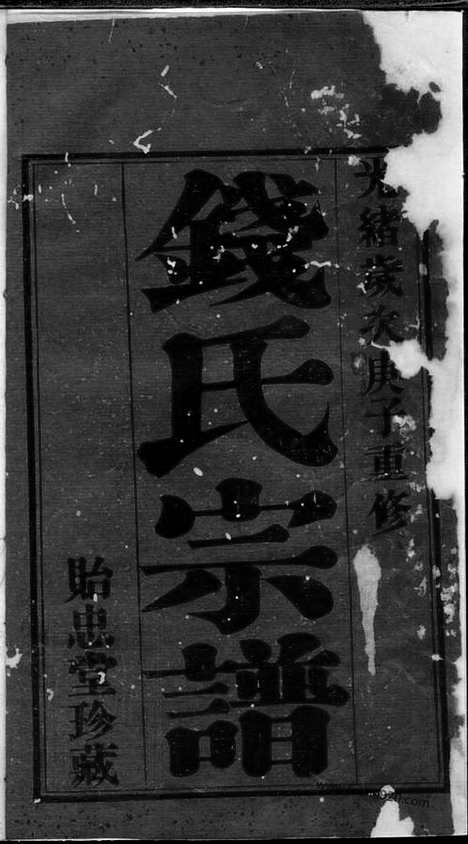 光緒歲次庚子重修
錢氏宗譜
貽忠堂珍藏